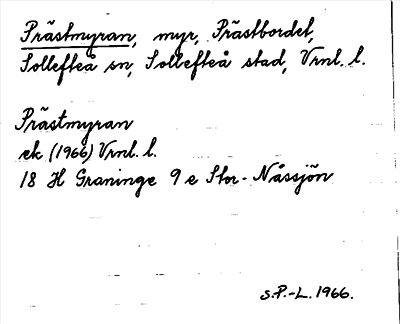 Prästmyran, myr, Prästbordet,
Sollefteå sn, Sollefteå stad, Vrnl. l.
Prästmyran
ek (1966) Vrnl. l.
18 H Graninge 9 e Stor-Nåssjön
S.P.-L. 1966.